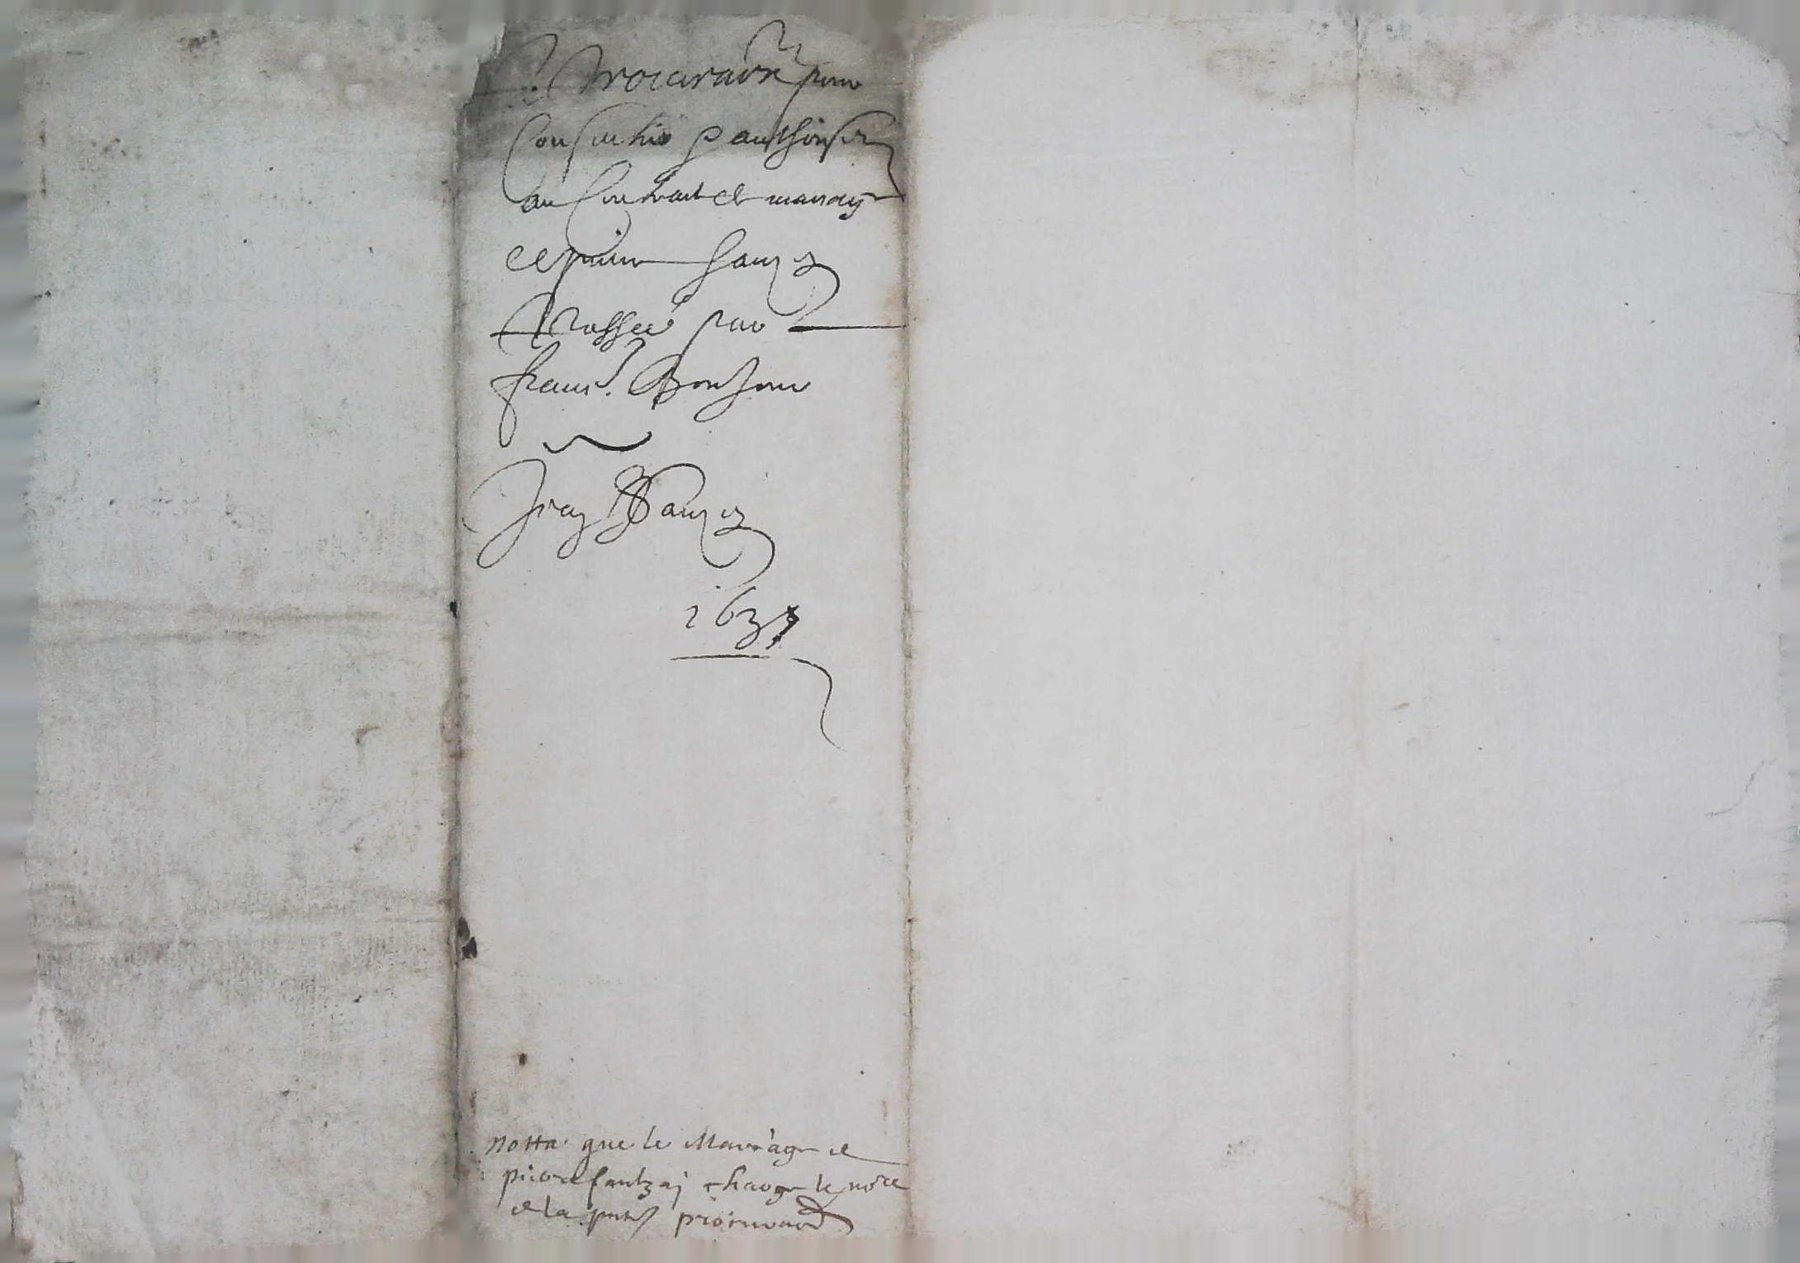 Procura'on pour
Consentir & authoriser
au Contract de mariage
de pierre fauzes
Passeé par
franc. Bonhome
Jean fauzes
1637
Notta que le Mariage de
pierre fautzaj charge le no're
de la pnte procuraon